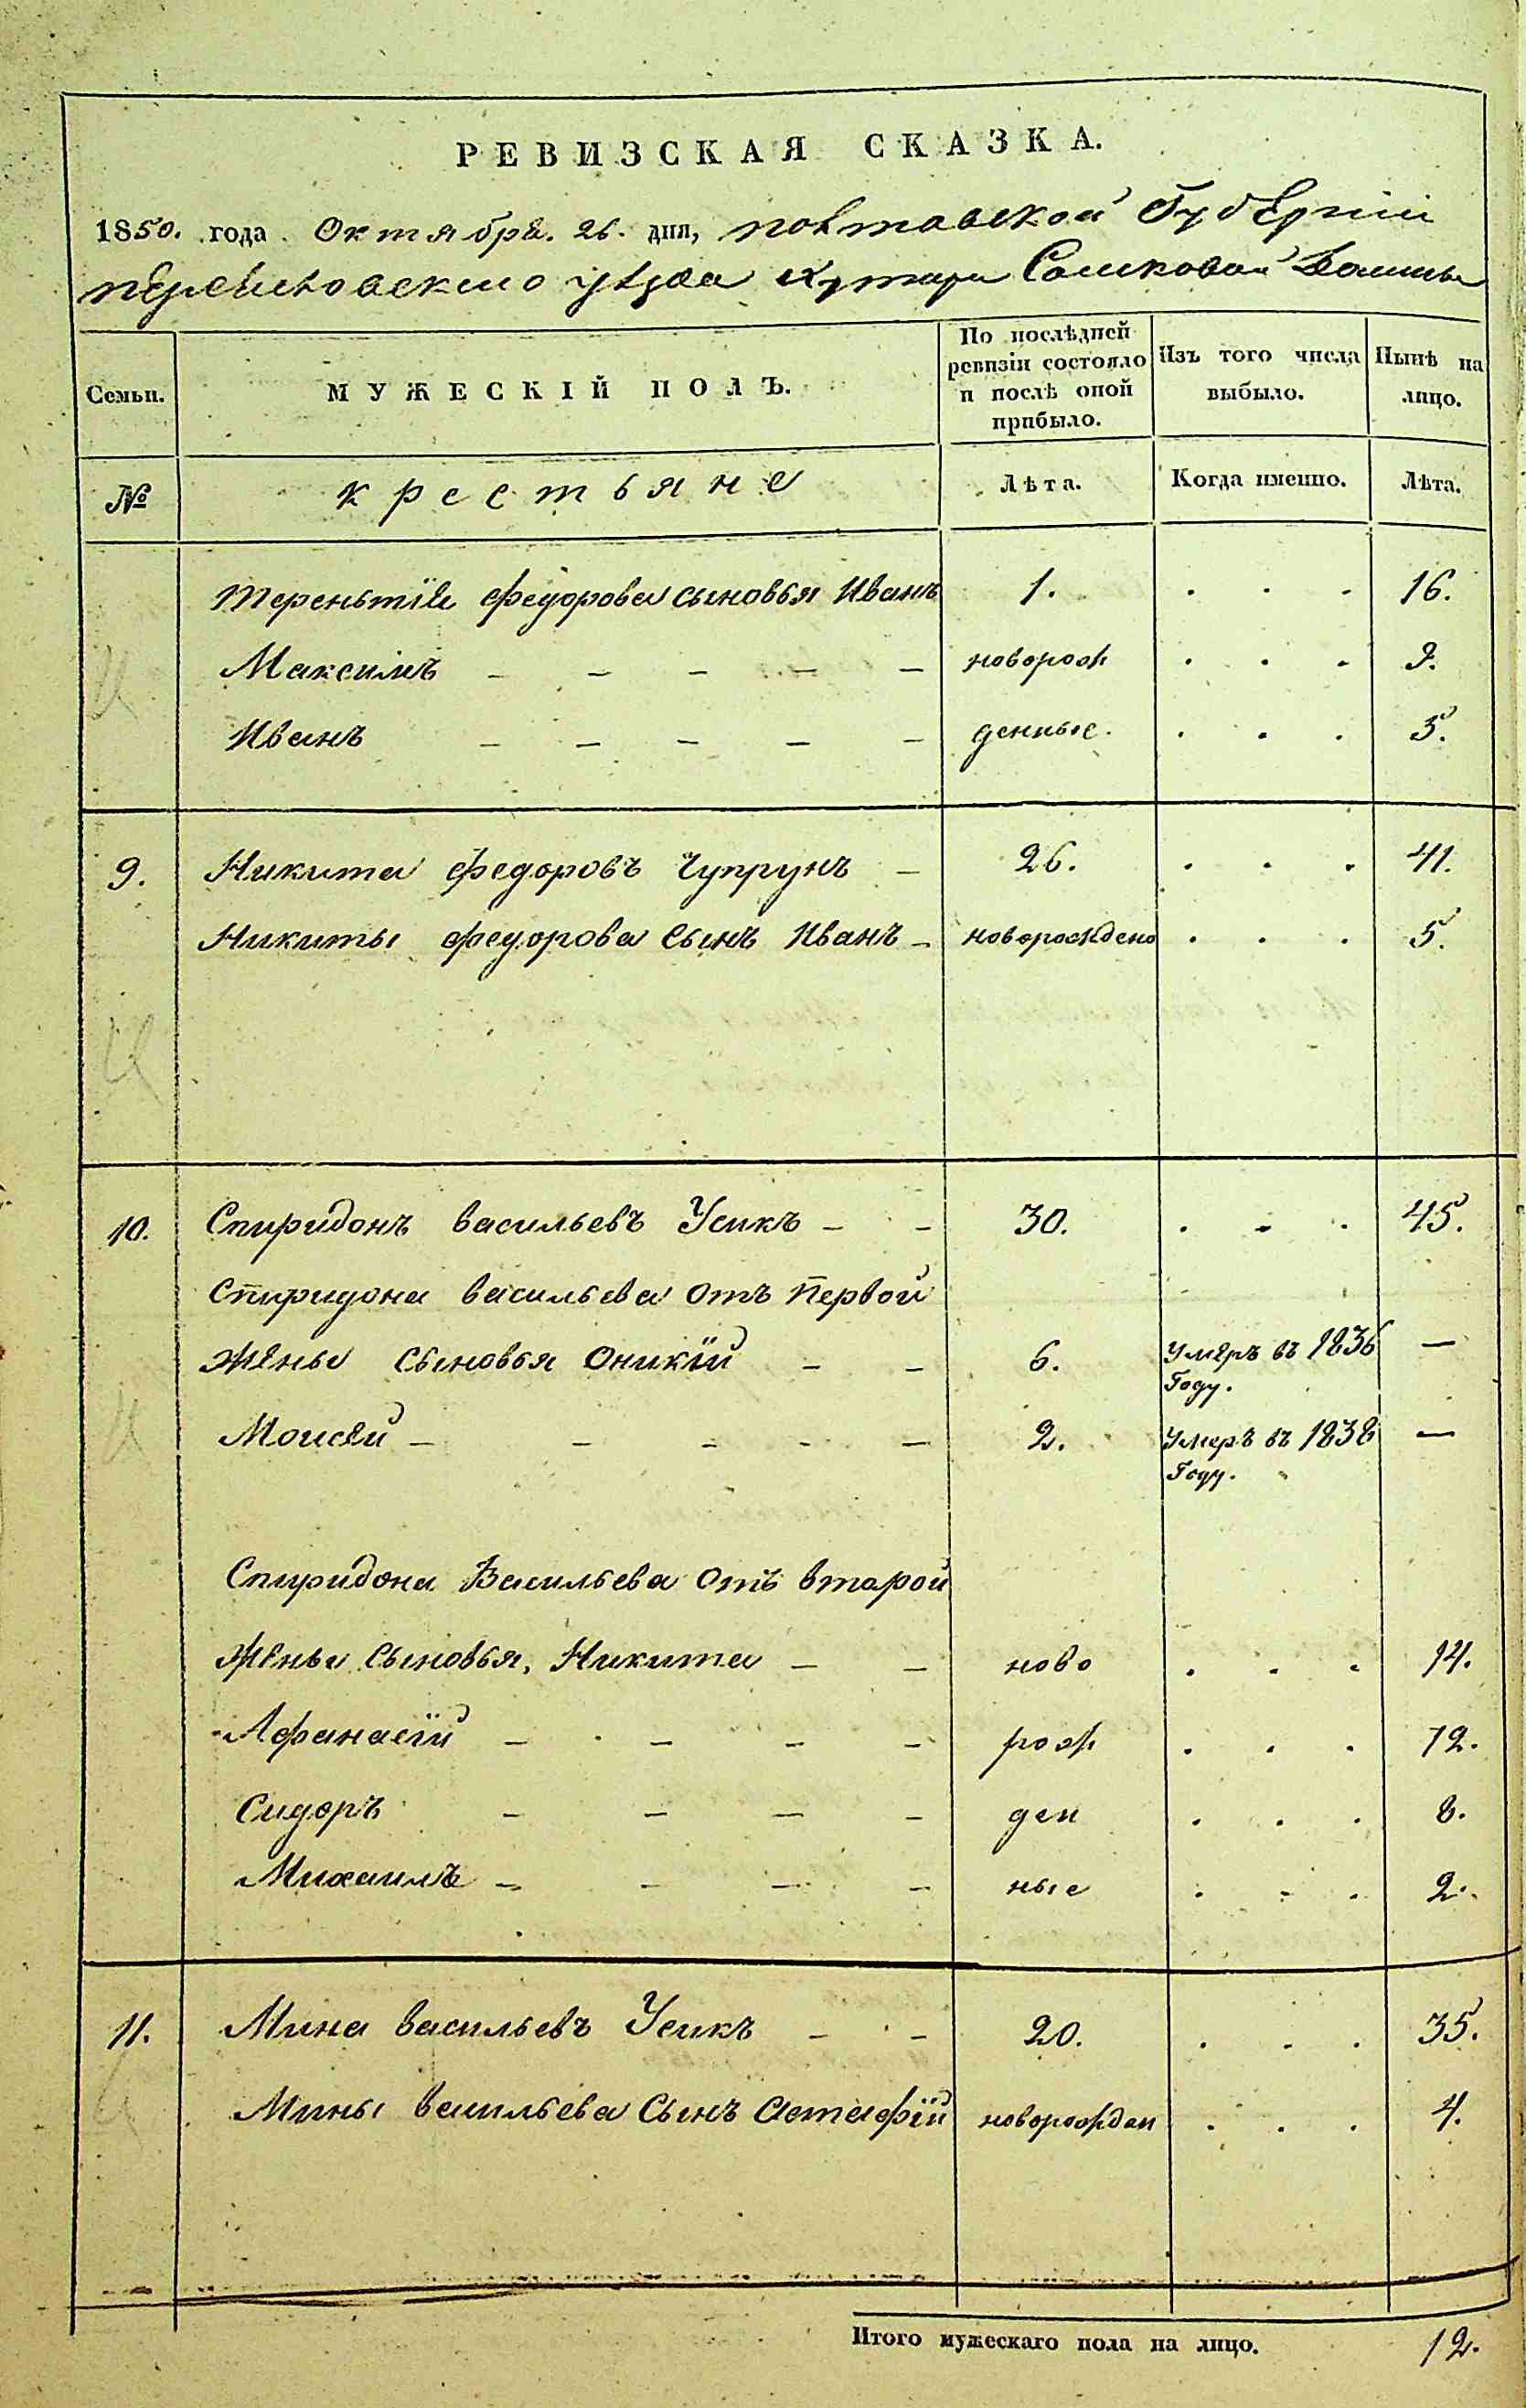 РЕВИЗСКАЯ СКАЗКА.
1850. года Октября. 26. дня, полтавской Губерніи
переяславскаго уѣзда хутора Сомковой Долины
Семьи. МУЖЕСКІЙ ПОЛЪ. По послѣдней ревизіи состояло и послѣ оной прибыло. Изъ того числа выбыло. Нынѣ на лицо.
№ крестьяне Лѣта. Когда именно. Лѣта.
Терентія федорова сыновья Иванъ 1. . . . 16.
Максимъ новорож . . . 9.
Иванъ денные. . . . 5.
9. Никита федоровъ Чупрунъ 26. . . . 41.
Никиты федорова Сынъ Иванъ новорождено . . . 5.
10. Спиридонъ васильевъ Усикъ 30. . . . 45.
Спиридона васильева отъ первой
жены сыновья Оникїй 6. умеръ въ 1836 —
Году.
Моисей 2. умеръ въ 1838 —
Году.
Спиридона Васильева отъ второй
жены сыновья, Никита ново . . . 14.
Афанасїй рож . . . 12.
Сидоръ ден . . . 8.
Михаилъ ные . . . 2.
11. Мина васильевъ Усикъ 20. . . . 35.
Мины васильева Сынъ Астафїй новорожден . . . 4.
Итого мужескаго пола на лицо. 12.